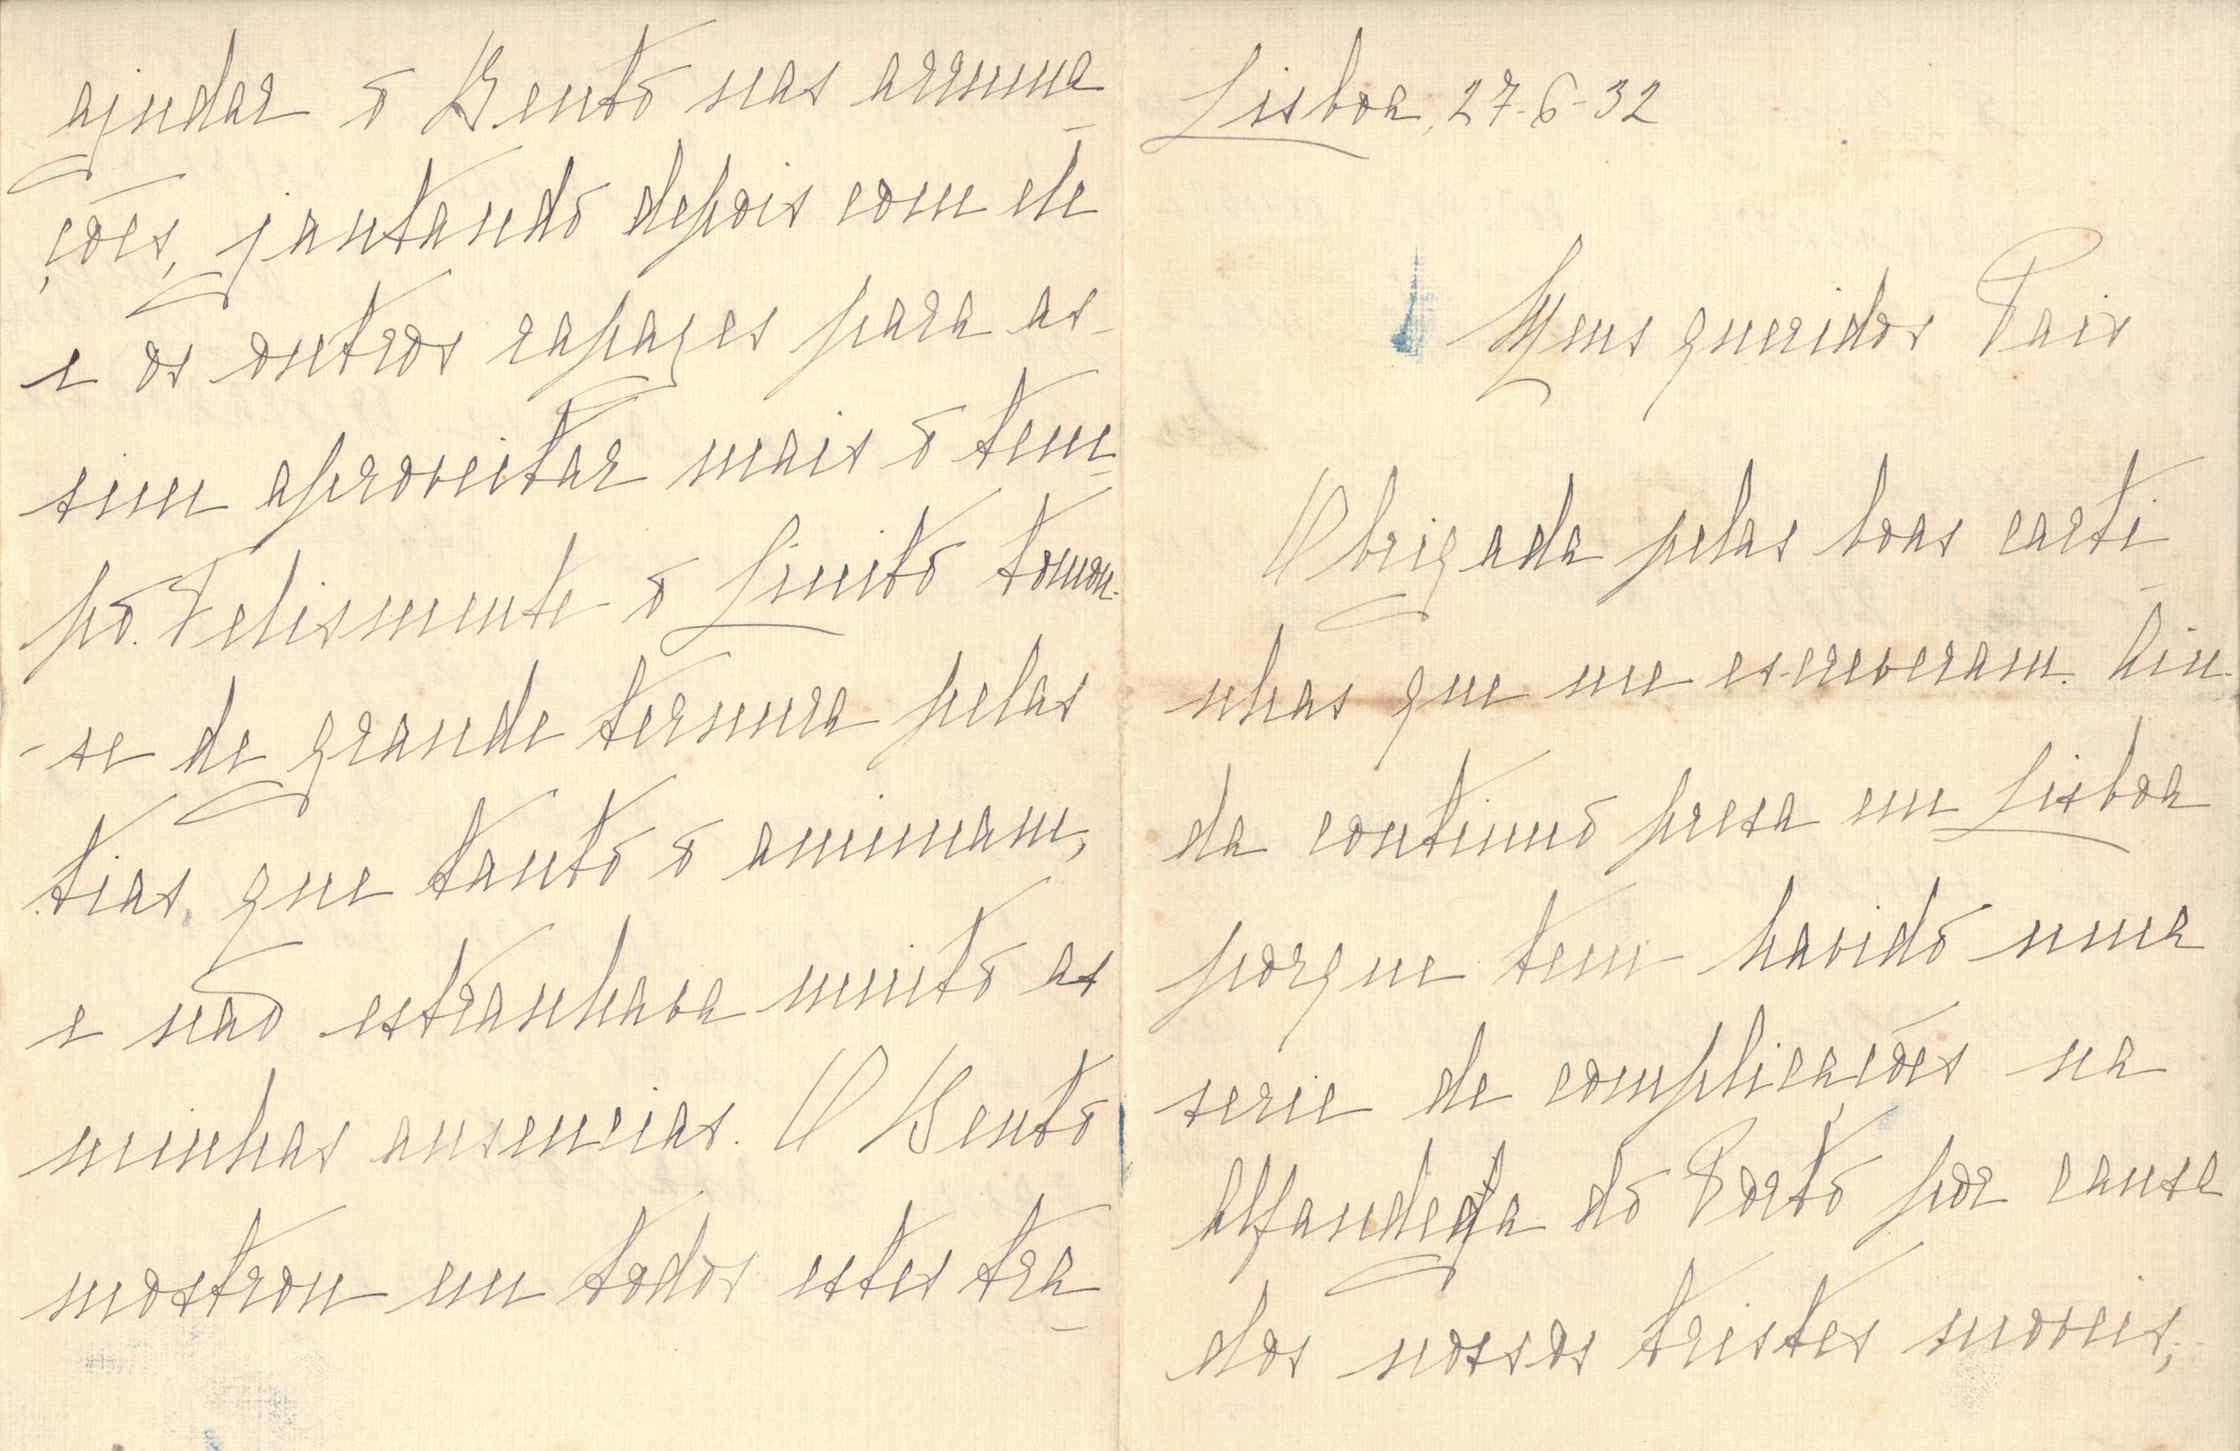 Lisboa, 27-6-32
Meus queridos Pais
Obrigada pelas boas carti-
nhas que me escreveram. Ain-
da continuo presa em Lisboa
porque tem havido uma
serie de complicacões na
Alfandega do Porto por causa
dos nossos tristes moveis,
ajudar o Bento nas arruma-
ções, jantando depois com ele
e os outros rapazes para as-
sim aproveitar mais o tem-
po. Felismente o Linito tomou-
-se de grande ternura pelas
tias, que tanto o animam,
e não estranhava muito as
minhas ausencias. O Bento
mostrou em todos estes tra-